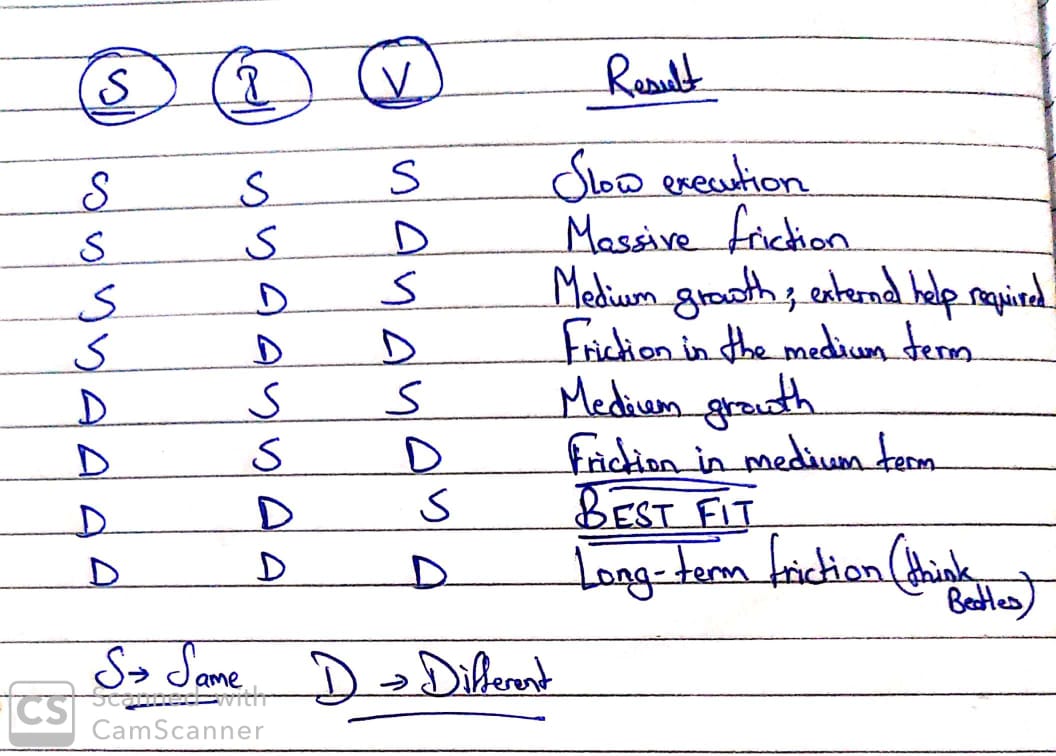 S P V Result
S S S Slow execution
S S D Massive friction
S D S Medium growth; external help required
S D D Friction in the medium term
D S S Medium growth
D S D Friction in medium term
D D S BEST FIT
D D D Long-term friction (think
Beatles)
S → Same D → Different
CS Scanned with
CamScanner